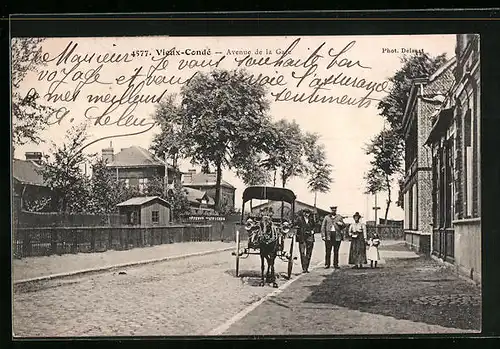 4577. Vieux-Condé — Avenue de la Gare
Phot. Delsart
Monsieur, Je vous souhaite bon
voyage et vous envoie l'assurance
de mes meilleurs sentiments
G. Deleu